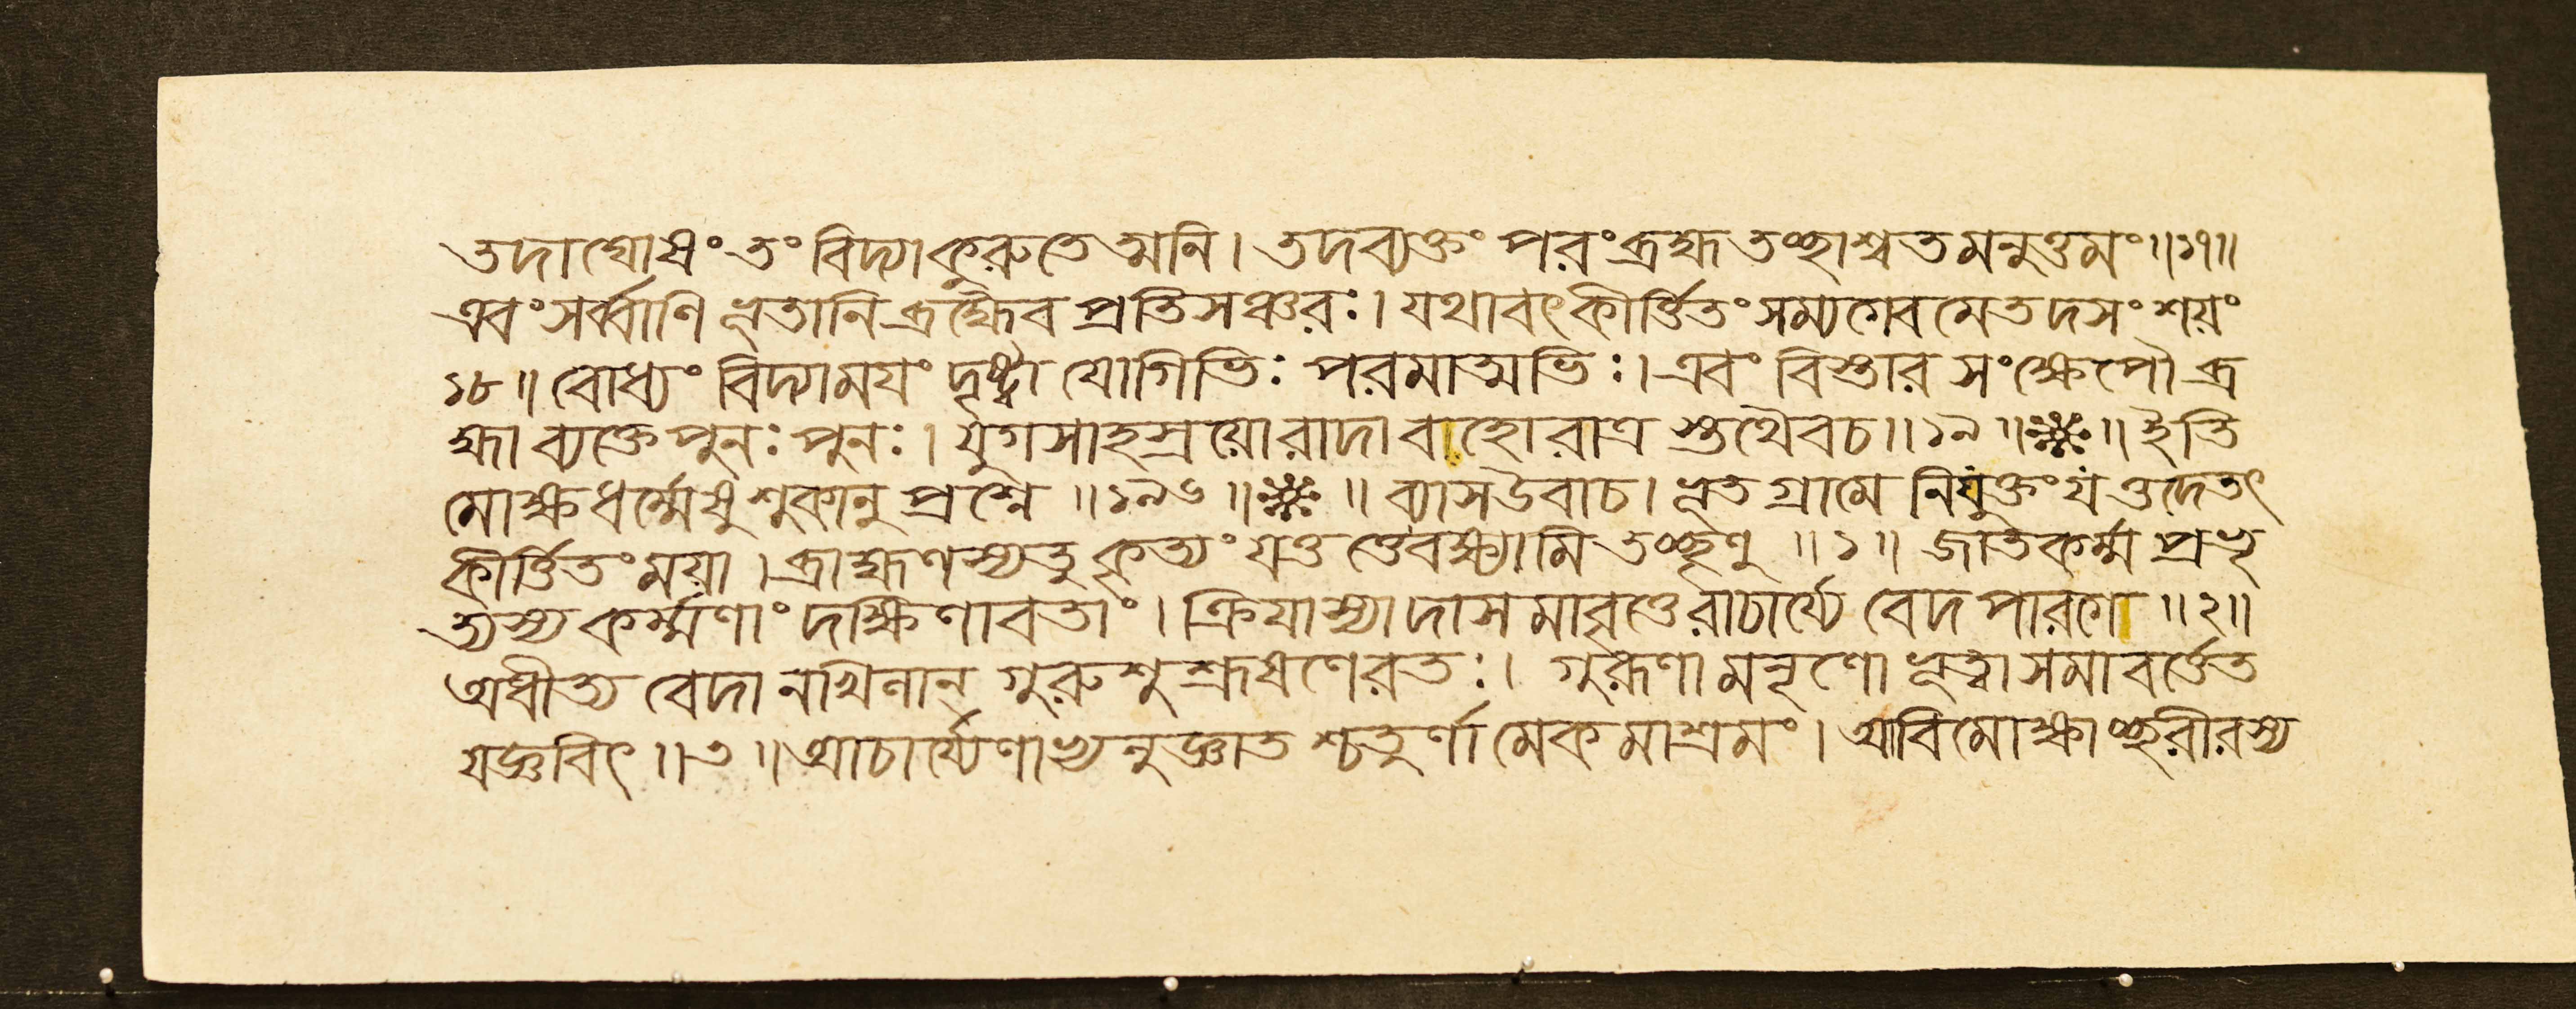 তদাঘোষং তং বিদ্যাকুরুতেত্মনি। তদব্যক্তং পরংব্রহ্মতচ্ছাশ্বতমনুত্তমং॥১৭॥
এবংসর্ব্বাণি ভূতানিব্রহ্মৈব প্রতিসঞ্চরঃ। যথাবৎকীর্ত্তিতংসম্যগেবমেতদসংশয়ং
১৮॥ বোধ্যং বিদ্যাময়ং দৃষ্ট্বা যোগিভিঃ পরমাত্মভিঃ। এবং বিস্তার সংক্ষেপৌ ব্র
হ্মাব্যক্তেপুনঃ পুনঃ। যুগসাহস্রয়োরাদাবাহোরাত্র স্তথৈবচ॥১৯॥❈॥ ইতি
মোক্ষধর্ম্মেষুশুকানু প্রশ্নে ॥১৯৬॥❈॥ ব্যাসউবাচ। ভূতগ্রামে নিযুক্তংযত্তদেতৎ
কীর্ত্তিতংময়া। ব্রাহ্মণস্যতুকৃত্যংযত্ত ত্তেবক্ষ্যামিতচ্ছৃণু ॥১॥ জাতকর্ম্ম প্রভৃ
ত্যস্য কর্ম্মণাং দক্ষিণাবতাং। ক্রিয়াস্যাদাসমাবৃত্তেরাচার্য্যে বেদপারগে ॥২॥
অধীত্য বেদানখিলান্ গুরুশুশ্রূষণেরতঃ। গুরূণামনৃণো ভূত্বাসমাবর্ত্তেত
যজ্ঞবিৎ॥৩॥ আচার্য্যেণাভ্যনুজ্ঞাতশ্চতুর্ণামেকমাশ্রমং। আবিমোক্ষাচ্ছরীরস্য